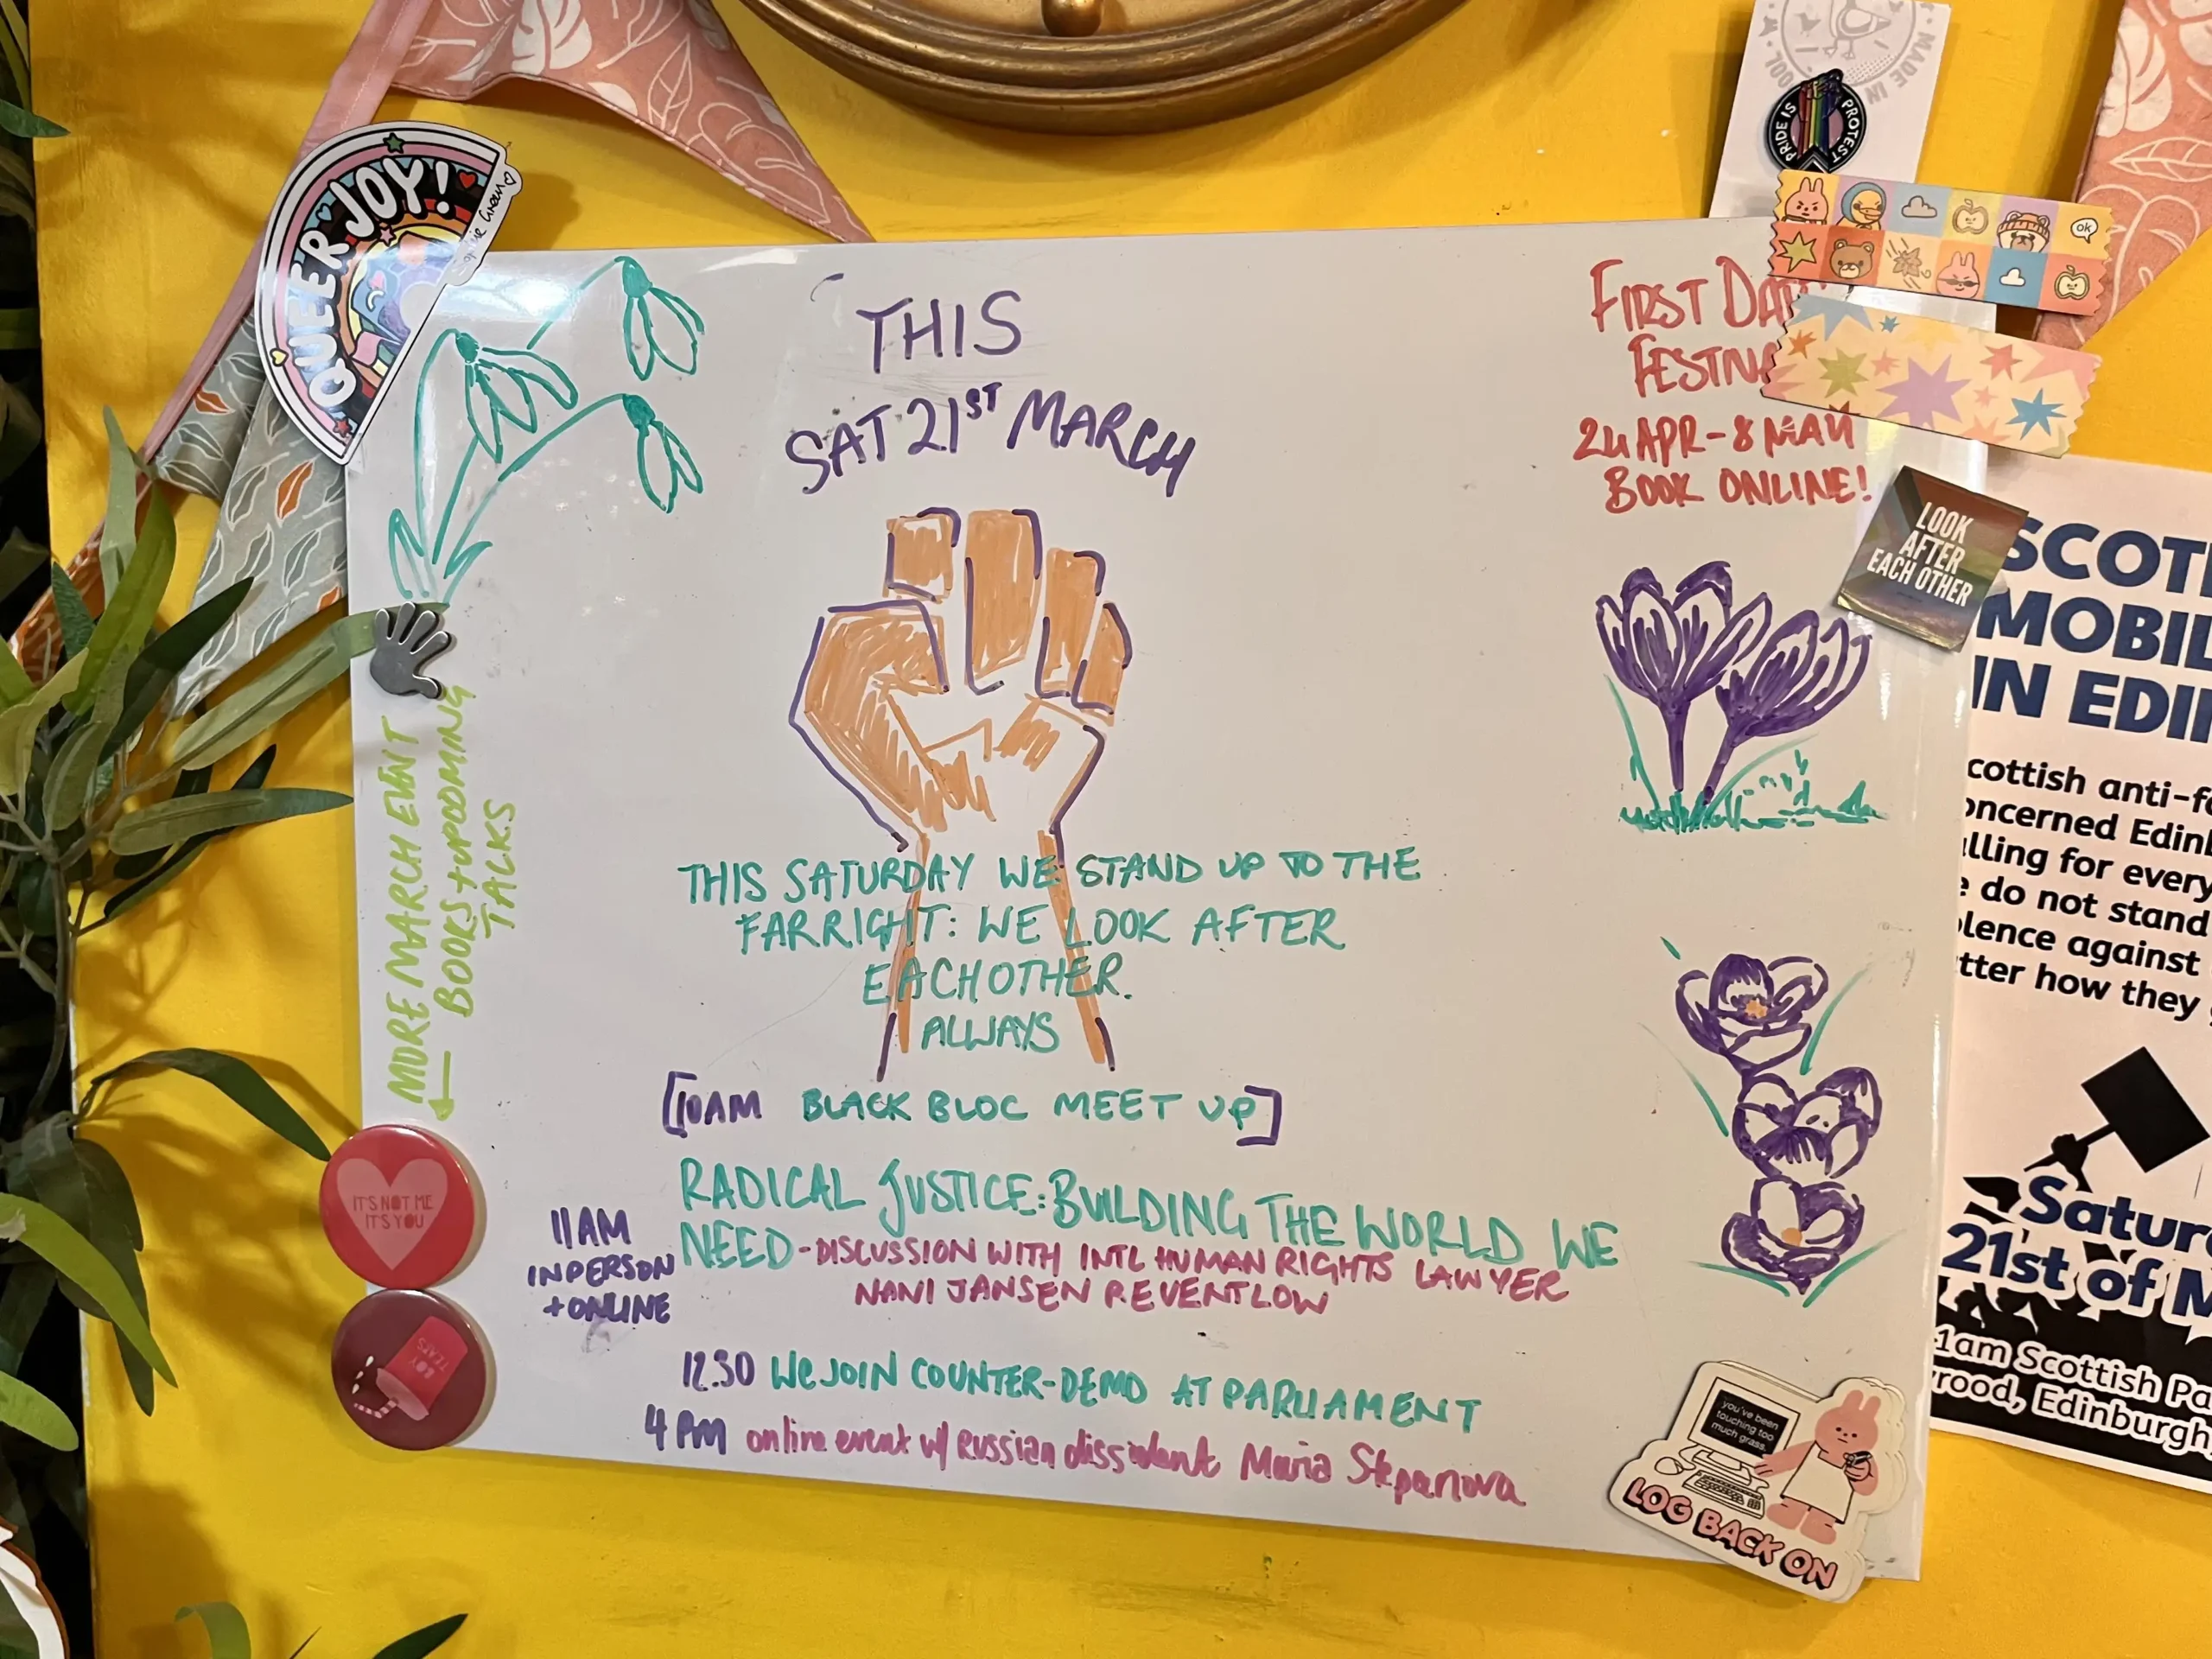 QUEER JOY!
Sophie Green
MADE IN
PRIDE IS PROTEST
OK
THIS
SAT 21ST MARCH
FIRST
24 APR - 8 MAY
BOOK ONLINE!
LOOK
AFTER
EACH OTHER
MORE MARCH EVENT
BOOKS + UPCOMING
TALKS
THIS SATURDAY WE STAND UP TO THE
FAR RIGHT: WE LOOK AFTER
EACH OTHER.
ALWAYS
[10AM BLACK BLOC MEET UP]
11AM
IN PERSON
+ ONLINE
RADICAL JUSTICE: BUILDING THE WORLD WE
NEED - DISCUSSION WITH INTL HUMAN RIGHTS LAWYER
NANI JANSEN REVENTLOW
12.30 WE JOIN COUNTER-DEMO AT PARLIAMENT
4 PM online event w/ Russian dissident Maria Stepanova
IT'S NOT ME
IT'S YOU
BOY
TEARS
you've been
touching too
much grass.
LOG BACK ON
SCOT
MOBIL
IN EDI
cottish anti-f
oncerned Edin
alling for every
e do not stand
lence against
tter how they
Satur
21st of M
1am Scottish Pa
rood, Edinburgh